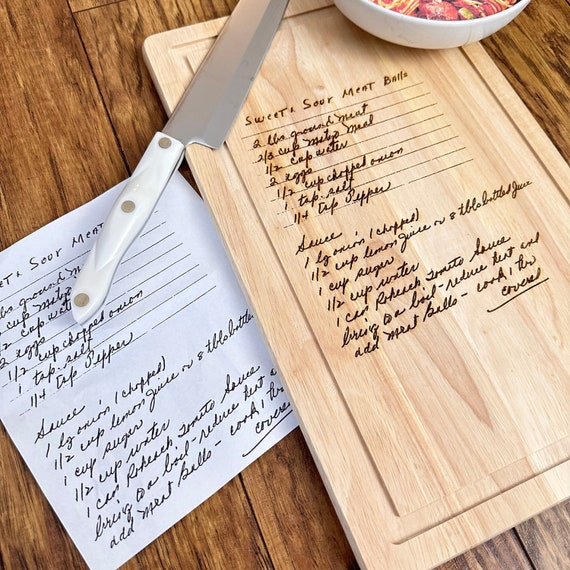 Sweet & Sour Meat Balls
2 lbs ground meat
2/3 cup Matzo Meal
1/2 cup water
2 eggs
1/2 cup chopped onion
1 tsp. salt
1/4 tsp Pepper
Sauce
1 lg onion (chopped)
1/2 cup lemon juice or 8 tbls bottled juice
1 cup sugar
1/2 cup water
1 can Rokeach Tomato Sauce
bring to a boil - reduce heat and
add meat balls - cook 1 hr
covered
eet & Sour Meat
lbs ground mea
cup Matzo
cup water
2 eggs
1/2 cup chopped onion
1 tsp. salt
1/4 tsp Pepper
Sauce
1 lg onion (chopped)
1/2 cup lemon juice or 8 tbls bottled
1 cup sugar
1/2 cup water
1 can Rokeach Tomato Sauce
bring to a boil - reduce heat a
add meat balls - cook 1 hr
covere